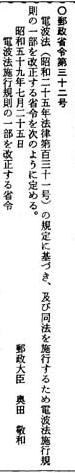 〇郵政省令第三十二号
電波法（昭和二十五年法律第百三十一号）の規定に基づき、及び同法を施行するため電波法施行規
則の一部を改正する省令を次のように定める。
昭和五十九年七月二十五日
郵政大臣 奥田 敬和
電波法施行規則の一部を改正する省令